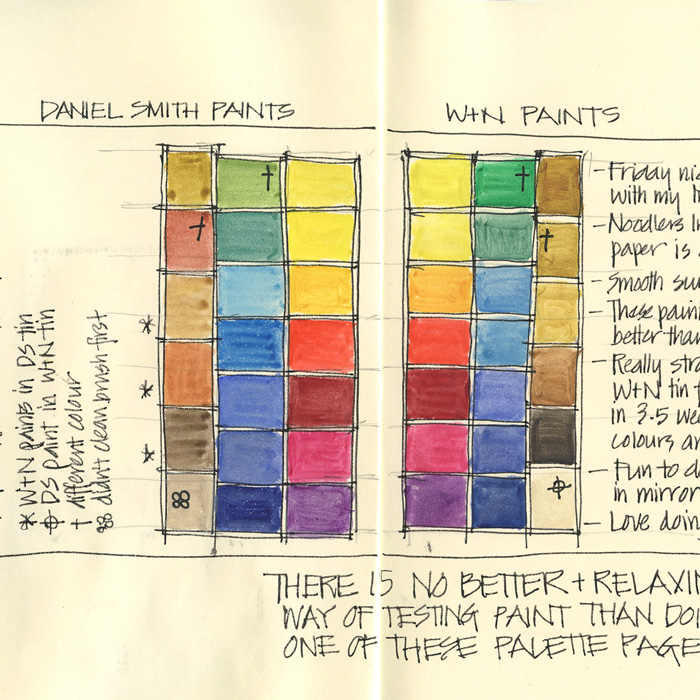 DANIEL SMITH PAINTS
W+N PAINTS
* W+N paints in DS tin
ϕ DS paint in W+N tin
† different colour
88 didn't clean brush first
*
*
*
†
†
88
†
†
ϕ
- Friday
with my
- Noodlers
paper is
- Smooth
- These
better than
- Really
W+N tin
in 3.5
colours
- Fun to
in mirror
- Love doin
THERE IS NO BETTER + RELAXIN
WAY OF TESTING PAINT THAN DOI
ONE OF THESE PALETTE PAGE